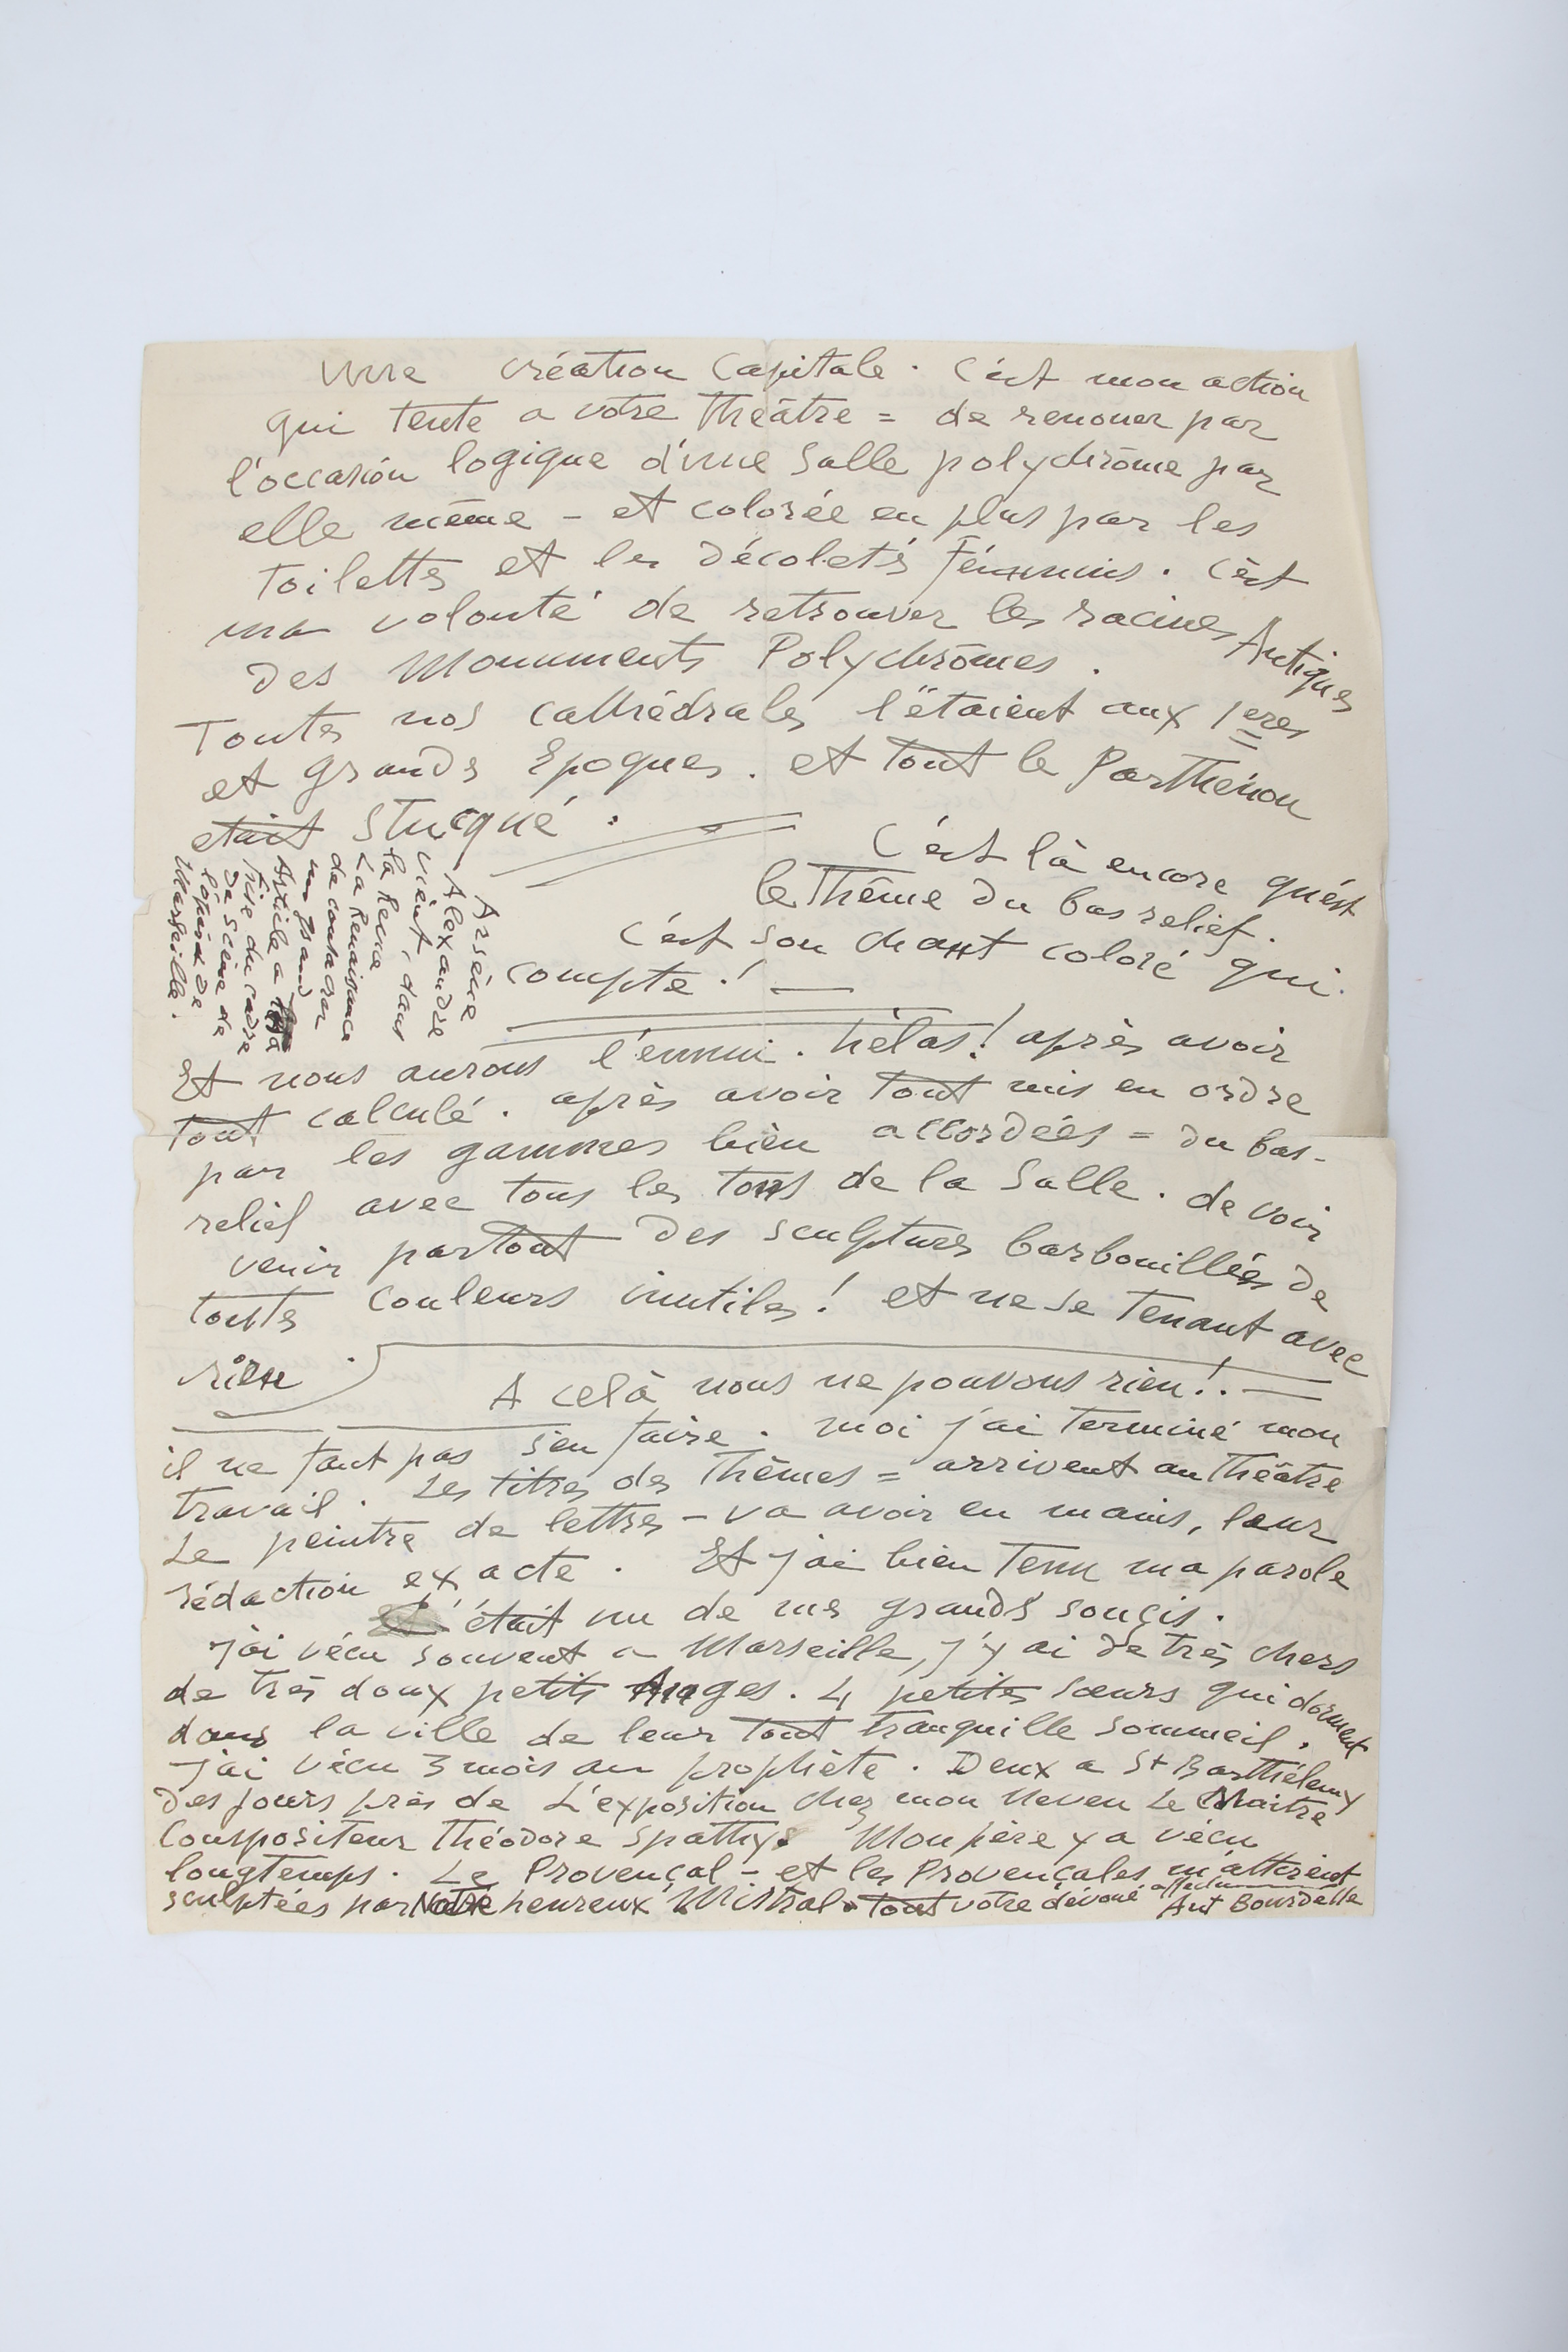 une création Capitale. C'est mon action
qui tente a votre Théâtre = de renouer par
l'occasion logique d'une Salle polychrôme par
elle même – et colorée en plus par les
Toilettes et les Décoletés Féminins. C'est
ma volonté de retrouver les racines Antiques
des Monuments Polychrômes.
Toutes nos cathédrales l'étaient aux 1eres
et grands Epoques. et tout le Parthénon
etait stucqué.
C'est là encore qu'est
le Thême du bas relief.
C'est son chant coloré qui
compte! —
Arsène
Alexandre
vient, dans
la Revue
La Renaissance
de consacrer
un grand
Article a
frise du cadre
de scène de
l'opéra de
Marseille.
Et nous aurons l'ennui. hélas! après avoir
tout calculé. après avoir tout mis en ordre
par les gammes bien accordées = du bas-
relief avec tous les tons de la Salle. de voir
venir partout des sculptures barbouillées de
toutes couleurs inutiles! et ne se tenant avec
rien.
A celà nous ne pouvons rien!. —
il ne faut pas s'en faire. moi j'ai terminé mon
travail. Les titres des Thêmes = arrivent au Théâtre
Le peintre de lettres – va avoir en mains, leur
rédaction exacte. Et j'ai bien Tenu ma parole
c'était un de mes grands soucis.
J'ai vécu souvent a Marseille, j'y ai de très chers
de très doux petits Anges. 4 petites sœurs qui dorment
dans la ville de leur tout tranquille sommeil.
J'ai vécu 3 mois au prophète. Deux a St Barthélemy
Des jours près de L'exposition chez mon Neveu Le Maitre
Compositeur Théodore Spathy. Mon père y a vécu
longtemps. Le Provençal – et les Provençales m'attirent
sculptées par Notre heureux Mistral. tout votre dévoué
Ant Bourdelle